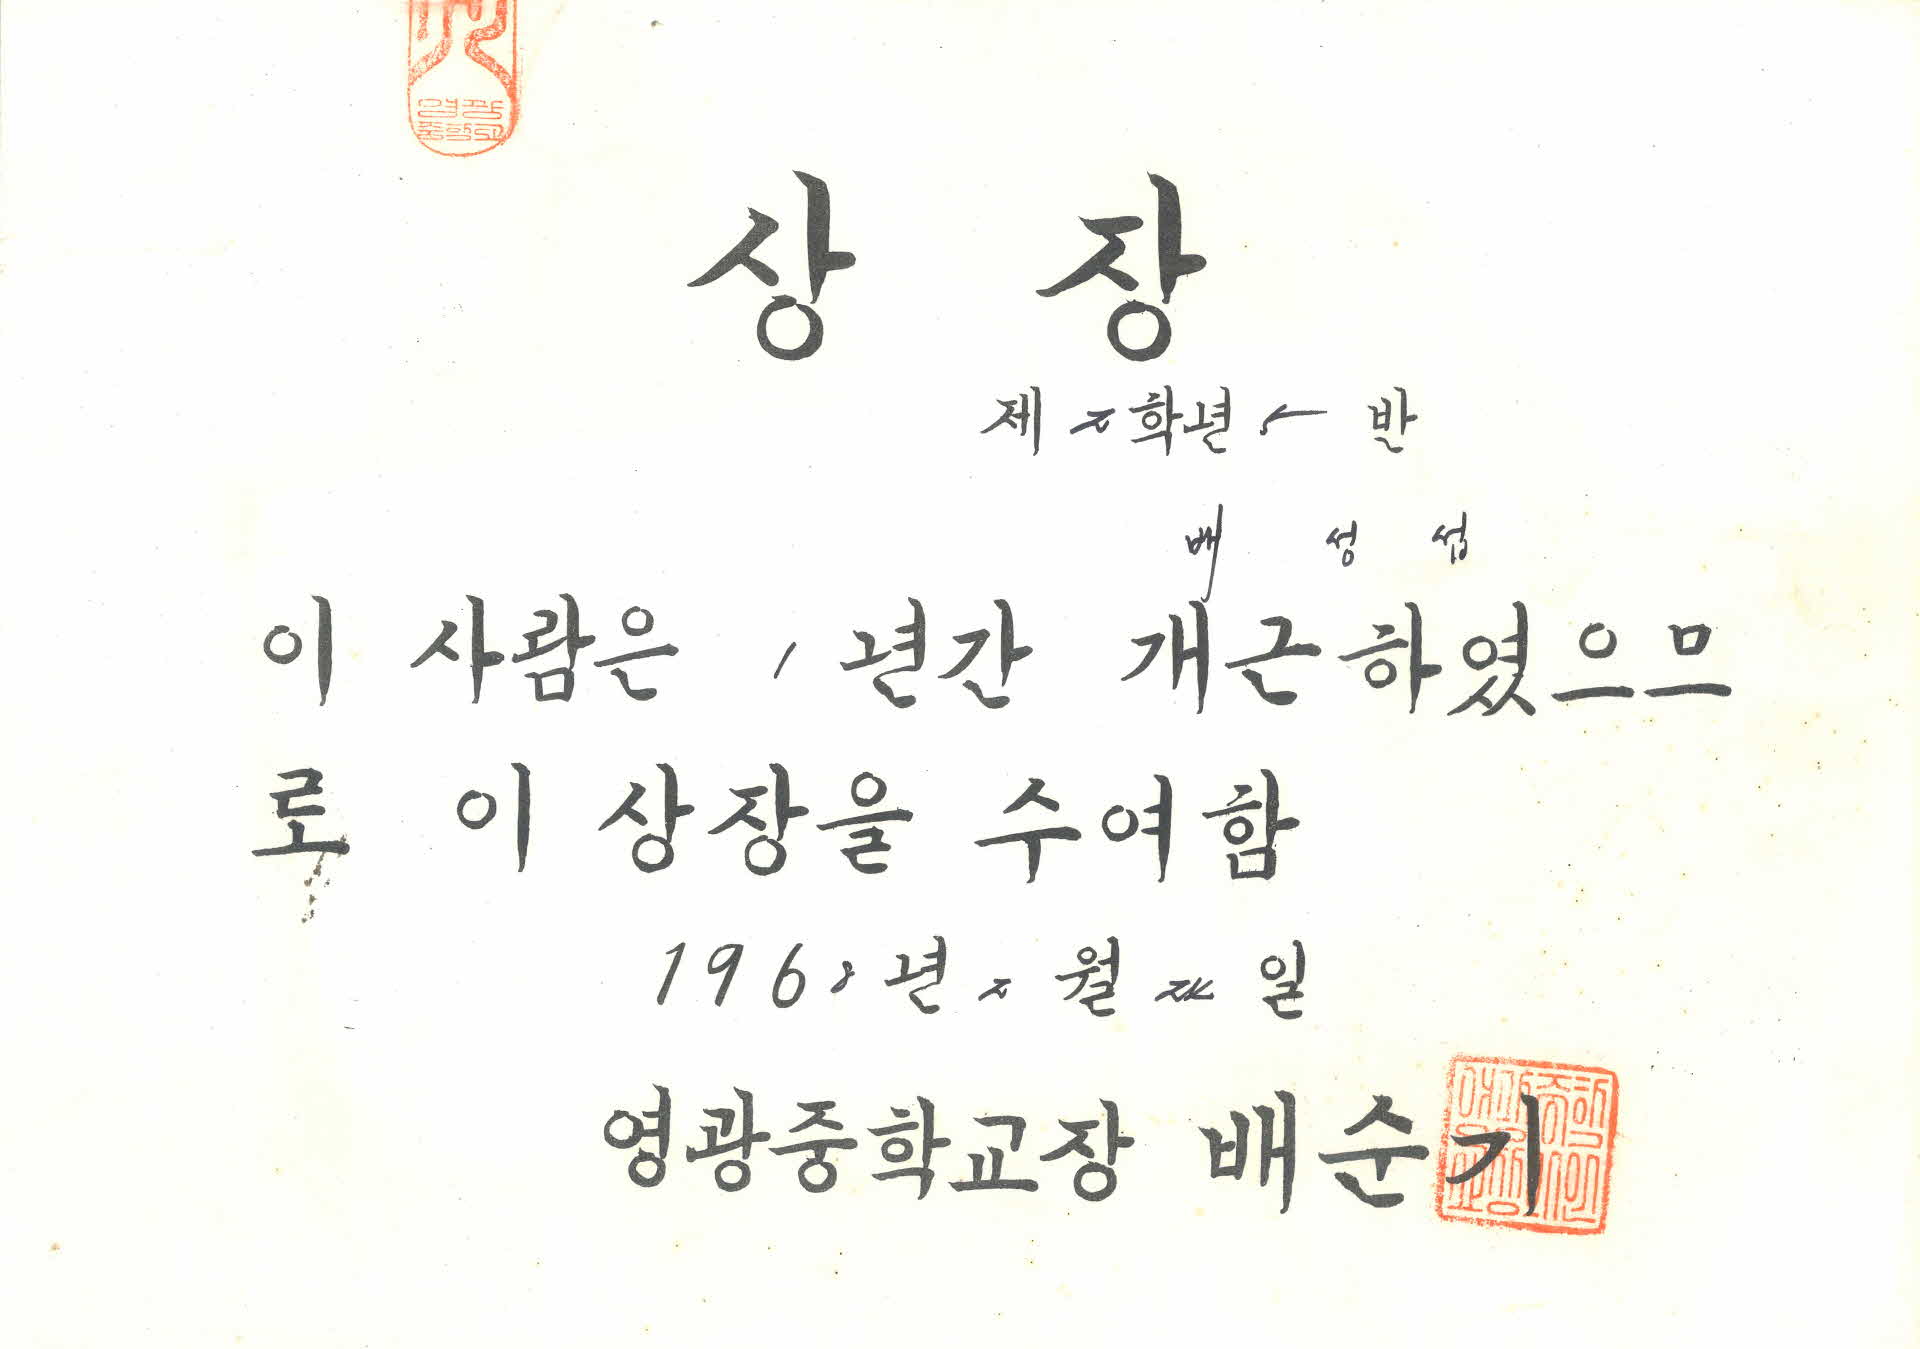 영광
중학교
상 장
제 2 학년 반
배 성 섭
이 사람은 1 년간 개근하였으므
로 이 상장을 수여함
1968년 2 월 일
영광중학교장 배순기